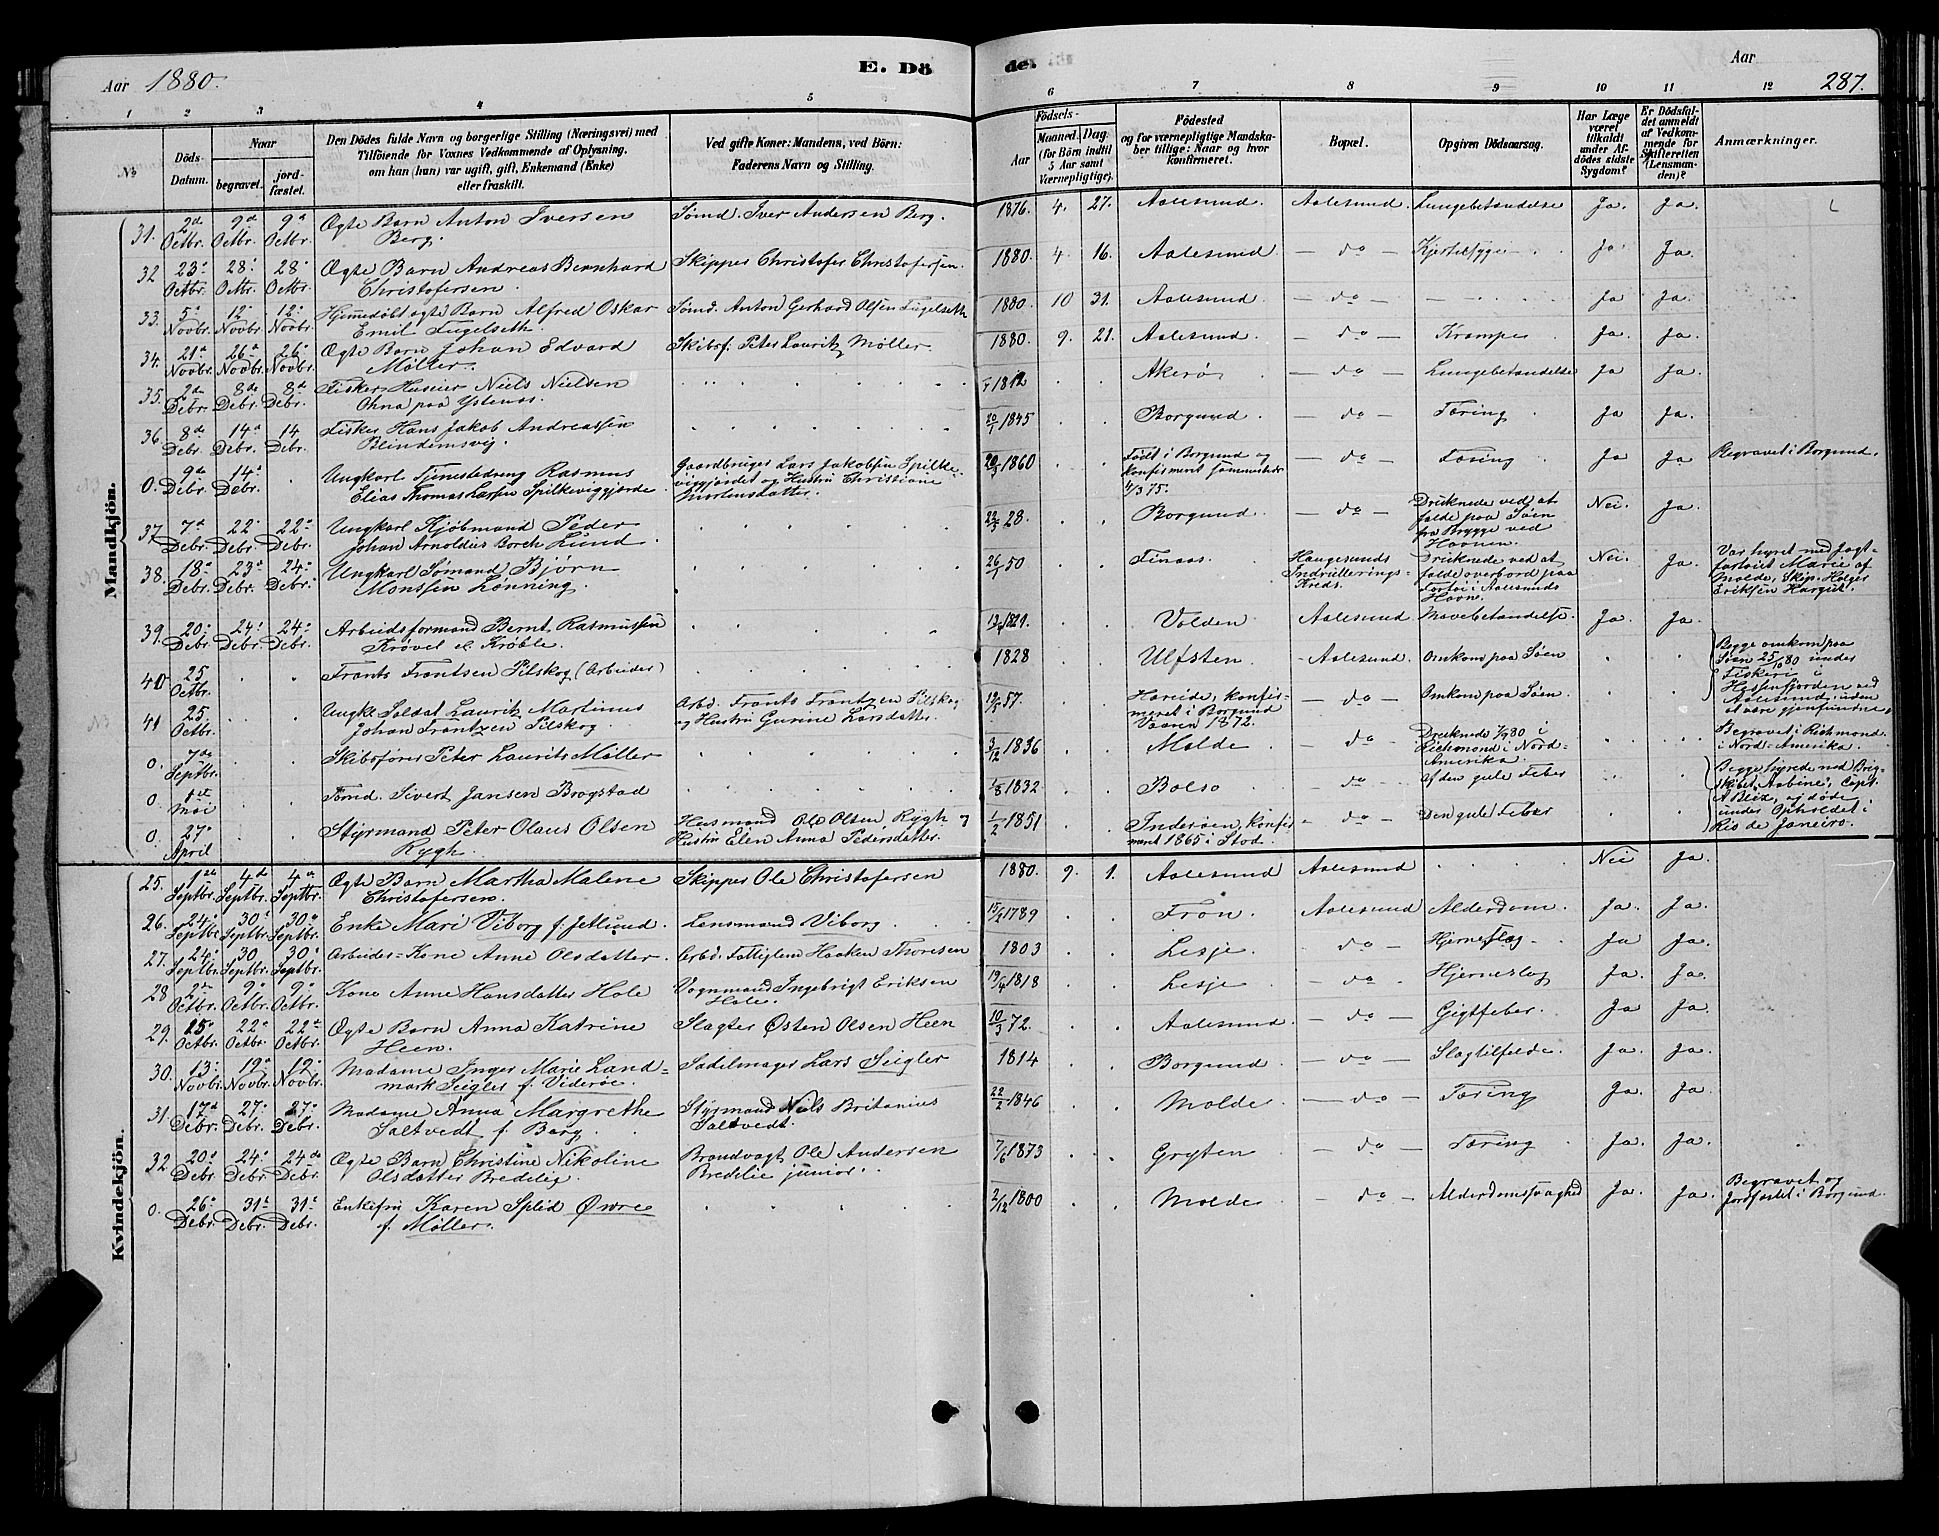 Aar 1880. E. Dö de. Aar 287.
1 2 3 4 5 6 7 8 9 10 11 12
No
Döds-Datum.
Naar begravet. jordfæstet.
Den Dödes fulde Navn og borgerlige Stilling (Næringsvei) med
Tilföiende for Voxnes Vedkommende af Oplysning,
om han (hun) var ugift, gift, Enkemand (Enke)
eller fraskilt.
Ved gifte Koner: Mandens, ved Börn:
Faderens Navn og Stilling.
Födsels-
Aar Maaned. Dag.
(for Börn indtil
5 Aar samt
Værnepligtige).
Födested
og for værnepligtige Mandska-
ber tillige: Naar og hvor
konfirmeret.
Bopæl.
Opgiven Dödsaarsag.
Har Læge
været
tilkaldt
under Af-
dödes sidste
Sygdom?
Er Dödsfal-
det anmeldt
af Vedkom-
mende for
Skifteretten
(Lensman-
den)?
Anmærkninger.
Mandkjön.
31. 2d Octbr. 9d Octbr. 9d Octbr. Ægte Barn Anton Iversen Berg. Sømd. Iver Andersen Berg. 1876. 4. 27. Aalesund. Aalesund. Lungebetændelse Ja. Ja.
32 23. Octbr. 28. Octbr. 28. Octbr. Ægte Barn Andreas Bernhard Christofersen. Skipper Christofer Christofersen. 1880. 4. 16. Aalesund — do — Kjertelsyge Ja. Ja.
33. 5. Novbr. 12. Novbr. 12. Novbr. Hjemmedøbt ægte Barn Alfred Oskar Emil Fugelseth. Sømd. Anton Gerhard Olsen Fugelseth 1880. 10 31. Aalesund. — do — Ja Ja.
34. 21. Novbr. 26. Novbr. 26. Novbr. Ægte Barn Johan Edvard Møller. Skibsf. Peter Lauritz Møller. 1880. 9. 21. Aalesund. — do — Krampe Ja. Ja.
35. 2d Debr. 8de Debr. 8d Debr. Fisker Huseier Niels Nielsen Ohna paa Ystenæs. 1812 Akerø — do — Lungebetændelse Ja Ja.
36 8d Debr. 14d Debr. 14 Debr. Fisker Hans Jakob Andreassen Blindemsvig. 20/1 1845 Borgund. — do — Tæring Ja Ja.
0. 9d Debr. 14d Debr. Ungkarl Tjenestedreng Rasmus Elias Thomas Larsen Spilkeviggjorde. Gaardbruger Lars Jakobsen Spilkeviggjordet og Hustru Christiane Mortensdatter. 1860 Født i Borgund og konfirmeret sammesteds 4/3 75. — do — Tæring Ja Ja Begravet i Borgund.
37 7d Debr. 22 Debr. 22 Debr. Ungkarl Kjøbmand Peder Johan Arnoldus Borch Lund. 28. Borgund. — do — Druknede ved at falde paa Søen fra Brygge ved Havnen. Nei. Ja.
38. 18d Debr. 23d Debr. 24. Debr. Ungkarl Sømand Bjørn Monssen Lønning. 26/1 50 Finaas. Haugesunds Indrullerings-Kreds. Druknede ved at falde overbord paa Fartøi i Aalesunds Havn. Nei. Ja. Var hyret med Jagtfartøiet Marie af Molde, Skip. Holger Eriksen Hargut.
39. 20. Debr. 24. Debr. 24. Debr. Arbeidsformand Bernt Rasmussen Krøvel el. Krøble. 1821. Volden Aalesund Mavebetændelse. Ja. Ja.
40 25 Octbr. Frants Frantsen Pilskog (Arbeider) 1828 Ulfsten. Aalesund. Omkom paa Søen Begge omkom paa Søen 25/10 80 under Fiskeri i Hessenfjorden ved Aalesund, uden at være gjenfundne.
41 25. Octbr. Ungk. Soldat Lauritz Martinus Johan Frantzen Pilskog. Arbd. Frants Frantzen Pilskog og Hustru Gurine Larsdatter. 12/5 57. Hareide, konfirmeret i Borgund Vaaren 1872. — do — Omkom paa Søen.
0. 7de Septbr. Skibsfører Peter Laurits Møller 3/12 1836 Molde — do — Druknede 7/9 80 i Richmond i Nord-Amerika. Begravet i Richmond i Nord-Amerika.
0. 1st Mai Sømd. Sivert Jansen Brogstad 1/8 1832 Bolsø — do — Af den gule Feber Begge hyrede med Brigskibet "Aabine", Capt. A. Blix, og døde under Opholdet i Rio de Janeiro.
0. 27. April Styrmand Peter Olaus Olsen Rygh. Husmand Ole Olsen Rygh og Hustru Elen Anna Pedersdatter. 1/2 1851 Inderøen, konfirmeret 1865 i Stod. — do — Den gule Feber
Kvindekjön.
25. 1ste Septbr. 4d Septbr. 4d Septbr. Ægte Barn Martha Malene Christofersen. Skipper Ole Christofersen 1880. 9. 1. Aalesund Aalesund Nei Ja.
26. 24. Septbr. 30. Septbr. 30. Septbr. Enke Mari Viborg f. Jetlund. Lensmand Viborg 15/2 1789 Fron. Aalesund Alderdom. Ja. Ja.
27. 24. Septbr. 30. Septbr. 30. Septbr. Arbeider-Kone Anne Olsdatter. Arbd. Fattiglem Haaken Thoresen 1803 Lesje. — do — Hjerneslag. Ja Ja.
28 2de Octbr. 9. Octbr. 9. Octbr. Kone Anne Hansdatter Hole Vognmand Ingebrigt Eriksen Hole. 19/4 1818 Lesje — do — Hjerneslag Ja. Ja.
29. 15. Octbr. 22. Octbr. 22. Octbr. Ægte Barn Anna Katrine Heen. Slagter Østen Olsen Heen 10/3 72. Aalesund. — do — Gigtfeber. Ja Ja.
30. 13. Novbr. 19. Novbr. 19. Novbr. Madame Inger Marie Landmark Seigler f. Viderøe. Sadelmager Lars Seigler 1814 Borgund — do — Slagtilfælde. Ja. Ja.
31. 17d Debr. 27. Debr. 27. Debr. Madame Anna Margrethe Saltvedt f. Berg. Styrmand Niels Britanius Saltvedt. 22/2 1846 Molde. — do — Tæring Ja. Ja.
32 20. Debr. 24. Debr. 24de Debr. Ægte Barn Christine Nikoline Olsdatter Bredelig. Brandvagt Ole Andersen Bredelie junior. 7/6 1873 Gryten — do — Tæring Ja. Ja.
0. 26. Debr. 31. Debr. 31. Debr. Enkefru Karen Splid Øwre f. Møller. 2/12 1800 Molde — do — Alderdomssvaghed Ja. Ja. Begravet og Jordfæstet i Borgund.